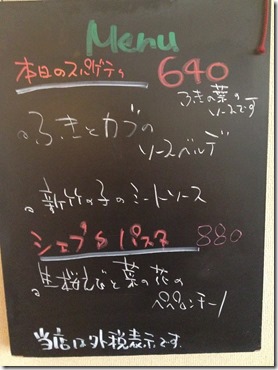 Menu
本日のスパゲティ 640
ふきの葉の
ソースです
ふきとカブの
ソースベルデ
新竹の子のミートソース
シェフ's パスタ 880
桜えびと菜の花の
ペペロンチーノ
当店は外税表示です.